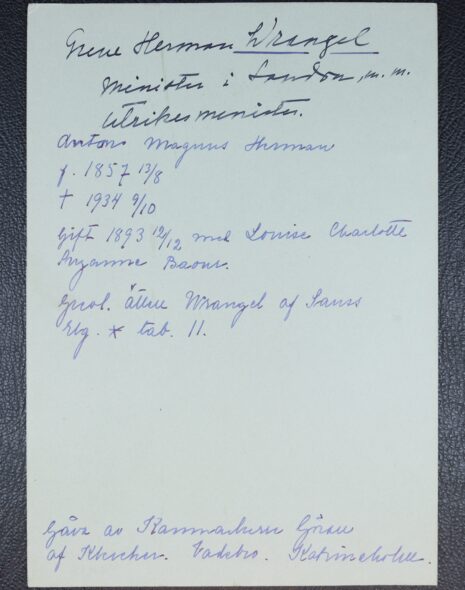 Greve Herman Wrangel
Minister i London, m. m.
Utrikesminister.
Anton Magnus Herman
f. 1857 13/8
† 1934 9/10
Gift 1893 12/12 med Louise Charlotte
Suzanne Baour.
Grevl. ätten Wrangel af Sauss
Elg. * tab. 11.
Gåva av Kammarherre Göran
af Klercker. Vadsbro. Katrineholm.